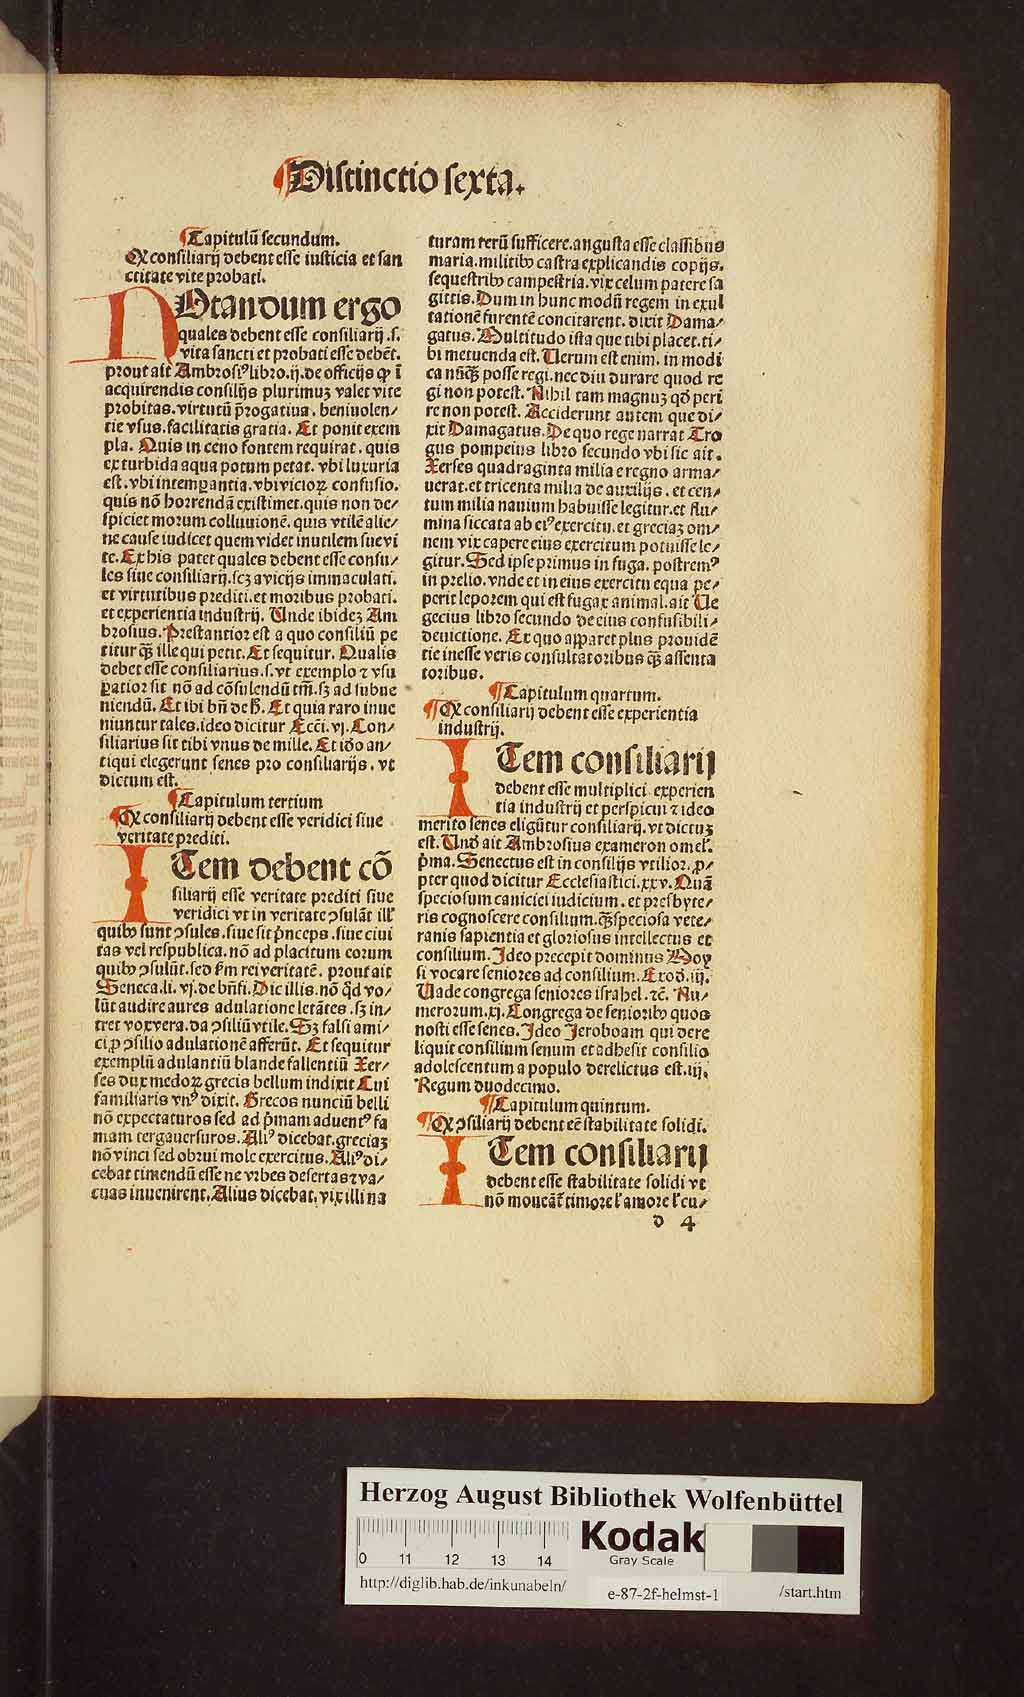 Distinctio sexta.
Capitulū secundum.
Qꝫ consiliarij debent esse iusticia et san
ctitate vite probati.
NOtandum ergo
quales debent esse consiliarij .s.
vita sancti et probati esse debēt.
prout ait Ambrosiꝰ libro .ij. de officijs ꝙ ī
acquirendis consilijs plurimuꝫ valet vite
probitas. virtutū p̄rogatiua. beniuolen⸗
tie vsus. facilitatis gratia. Et ponit exem
pla. Quis in ceno fontem requirat. quis
ex turbida aqua potum petat. vbi luxuria
est. vbi intemꝑantia. vbi vicioꝝ confusio.
quis nō horrendā existimet. quis non de⸗
spiciet morum colluuionē. quis vtilē alie⸗
ne cause iudicet quem videt inutilem sue vi
te. Ex his patet quales debent esse consu⸗
les siue consiliarij. scꝫ a vicijs immaculati.
et virtutibus prediti. et moribus probati.
et experientia industrij. Unde ibideꝫ Am
brosius. Prestantior est a quo consiliū pe
titur qꝫ̄ ille qui petit. Et sequitur. Qualis
debet esse consiliarius .s. vt exemplo ⁊ vsu
ꝑatior sit nō ad cōsulendū tm̄. sꝫ ad subue
niendū. Et ibi bn̄ de h̄. Et quia raro inue
niuntur tales. ideo dicitur Ecc̄i. vj. Con⸗
siliarius sit tibi vnus de mille. Et iđo an⸗
tiqui elegerunt senes pro consiliarijs. vt
dictum est.
Capitulum tertium
Qꝫ consiliarij debent esse veridici siue
veritate prediti.
ITem debent cō
siliarij esse veritate prediti siue
veridici vt in veritate ꝯsulāt ill'
quibꝰ sunt ꝯsules. siue sit p̄nceps. siue ciui
tas vel respublica. nō ad placitum eorum
quibꝰ ꝯsulūt. sed fm rei veritatē. prout ait
Seneca. li. vj. de bn̄fi. Dic illis. nō qd̄ vo⸗
lūt audire aures adulatione letātes. sꝫ in⸗
tret vox vera. da ꝯsiliū vtile. Sꝫ falsi ami⸗
ci ꝓ ꝯsilio adulationē afferūt. Et sequitur
exemplū adulantiū blande fallentiū Xer⸗
ses dux medoꝝ grecis bellum indixit Cui
familiaris vnꝰ dixit. Grecos nunciū belli
nō expectaturos sed ad p̄mam aduentꝰ fa
mam tergauersuros. Aliꝰ dicebat. greciaꝫ
nō vinci sed obrui mole exercitus. Aliꝰ di⸗
cebat timendū esse ne vrbes desertas ⁊ va⸗
cuas inuenirent. Alius dicebat. vix illi na
turam rerū sufficere. angusta esse classibus
maria. militibꝰ castra explicandis copijs.
sequestribꝰ campestria. vix celum patere sa
gittis. Dum in hunc modū regem in exul
tationē furentē concitarent. dixit Dama⸗
gatus. Multitudo ista que tibi placet. ti⸗
bi metuenda est. Uerum est enim. in modi
ca nūqꝫ̄ posse regi. nec diu durare quod re
gi non potest. Nihil tam magnuꝫ qđ peri
re non potest. Acciderunt autem que di⸗
xit Damagatus. De quo rege narrat Tro
gus pompeius libro secundo vbi sic ait.
Xerses quadraginta milia e regno arma⸗
uerat. et tricenta milia de auxilijs. et cen⸗
tum milia nauium habuisse legitur. et flu⸗
mina siccata ab eiꝰ exercitu. et greciaꝫ om⸗
nem vix capere eius exercitum potuisse le⸗
gitur. Sed ipse primus in fuga. postremꝰ
in prelio. vnde et in eius exercitu equa pe⸗
perit leporem qui est fugax animal. ait Ue
gecius libro secundo de eius confusibili⸗
deuictione. Ex quo apparet plus prouidē
tie inesse veris consultatoribus qꝫ̄ assenta
toribus.
Capitulum quartum.
Qꝫ consiliarij debent esse experientia
industrij.
ITem consiliarij
debent esse multiplici experien
tia industrij et perspicui ⁊ ideo
merito senes eligūtur consiliarij. vt dictuꝫ
est. Unđ ait Ambrosius exameron omel'.
p̄ma. Senectus est in consilijs vtilior. ꝓ⸗
pter quod dicitur Ecclesiastici. xxv. Quā
speciosum caniciei iudicium. et presbyte⸗
ris cognoscere consilium. qꝫ̄ speciosa vete⸗
ranis sapientia et gloriosus intellectus et
consilium. Ideo precepit dominus Moy
si vocare seniores ad consilium. Exođ. iij.
Uade congrega seniores israhel. ⁊c̄. Nu⸗
merorum. xj. Congrega de senioribꝰ quos
nosti esse senes. Ideo Jeroboam qui dere
liquit consilium senum et adhesit consilio
adolescentum a populo derelictus est. iij.
Regum duodecimo.
Capitulum quintum.
Qꝫ ꝯsiliarij debent eē stabilitate solidi.
ITem consiliarij
debent esse stabilitate solidi vt
nō moueāt timore l' amore l' cu⸗
d 4
Herzog August Bibliothek Wolfenbüttel
0 11 12 13 14
Kodak
Gray Scale
http://diglib.hab.de/inkunabeln/
e-87-2f-helmst-1
/start.htm